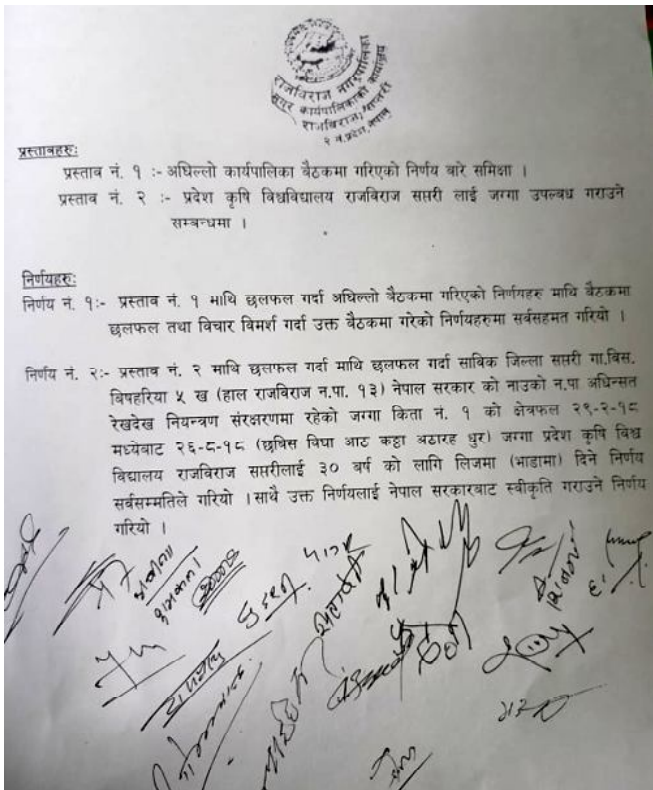 राजविराज नगरपालिका
नगर कार्यपालिकाको कार्यालय
राजविराज, सप्तरी
२ नं. प्रदेश, नेपाल
प्रस्तावहरुः
प्रस्ताव नं. १ :- अघिल्लो कार्यपालिका बैठकमा गरिएको निर्णय बारे समिक्षा ।
प्रस्ताव नं. २ :- प्रदेश कृषि विश्वविद्यालय राजविराज सप्तरी लाई जग्गा उपलब्ध गराउने
सम्बन्धमा ।
निर्णयहरुः
निर्णय नं. १:- प्रस्ताव नं. १ माथि छलफल गर्दा अघिल्लो बैठकमा गरिएको निर्णयहरु माथि बैठकमा
छलफल तथा विचार विमर्श गर्दा उक्त बैठकमा गरेको निर्णयहरुमा सर्वसहमत गरियो ।
निर्णय नं. २:- प्रस्ताव नं. २ माथि छलफल गर्दा माथि छलफल गर्दा साविक जिल्ला सप्तरी गा.बिस.
बिषहरिया ५ ख (हाल राजविराज न.पा. १३) नेपाल सरकार को नाउको न.पा अधिन्सत
रेखदेख नियन्त्रण संरक्षणमा रहेको जग्गा किता नं. १ को क्षेत्रफल २९-२-१८
मध्येबाट २६-८-१८ (छविस विघा आट कठ्ठा अठारह धुर) जग्गा प्रदेश कृषि विश्व
विद्यालय राजविराज सप्तरीलाई ३० बर्ष को लागि लिजमा (भाडामा) दिने निर्णय
सर्वसम्मतिले गरियो । साथै उक्त निर्णयलाई नेपाल सरकारबाट स्वीकृति गराउने निर्णय
गरियो ।